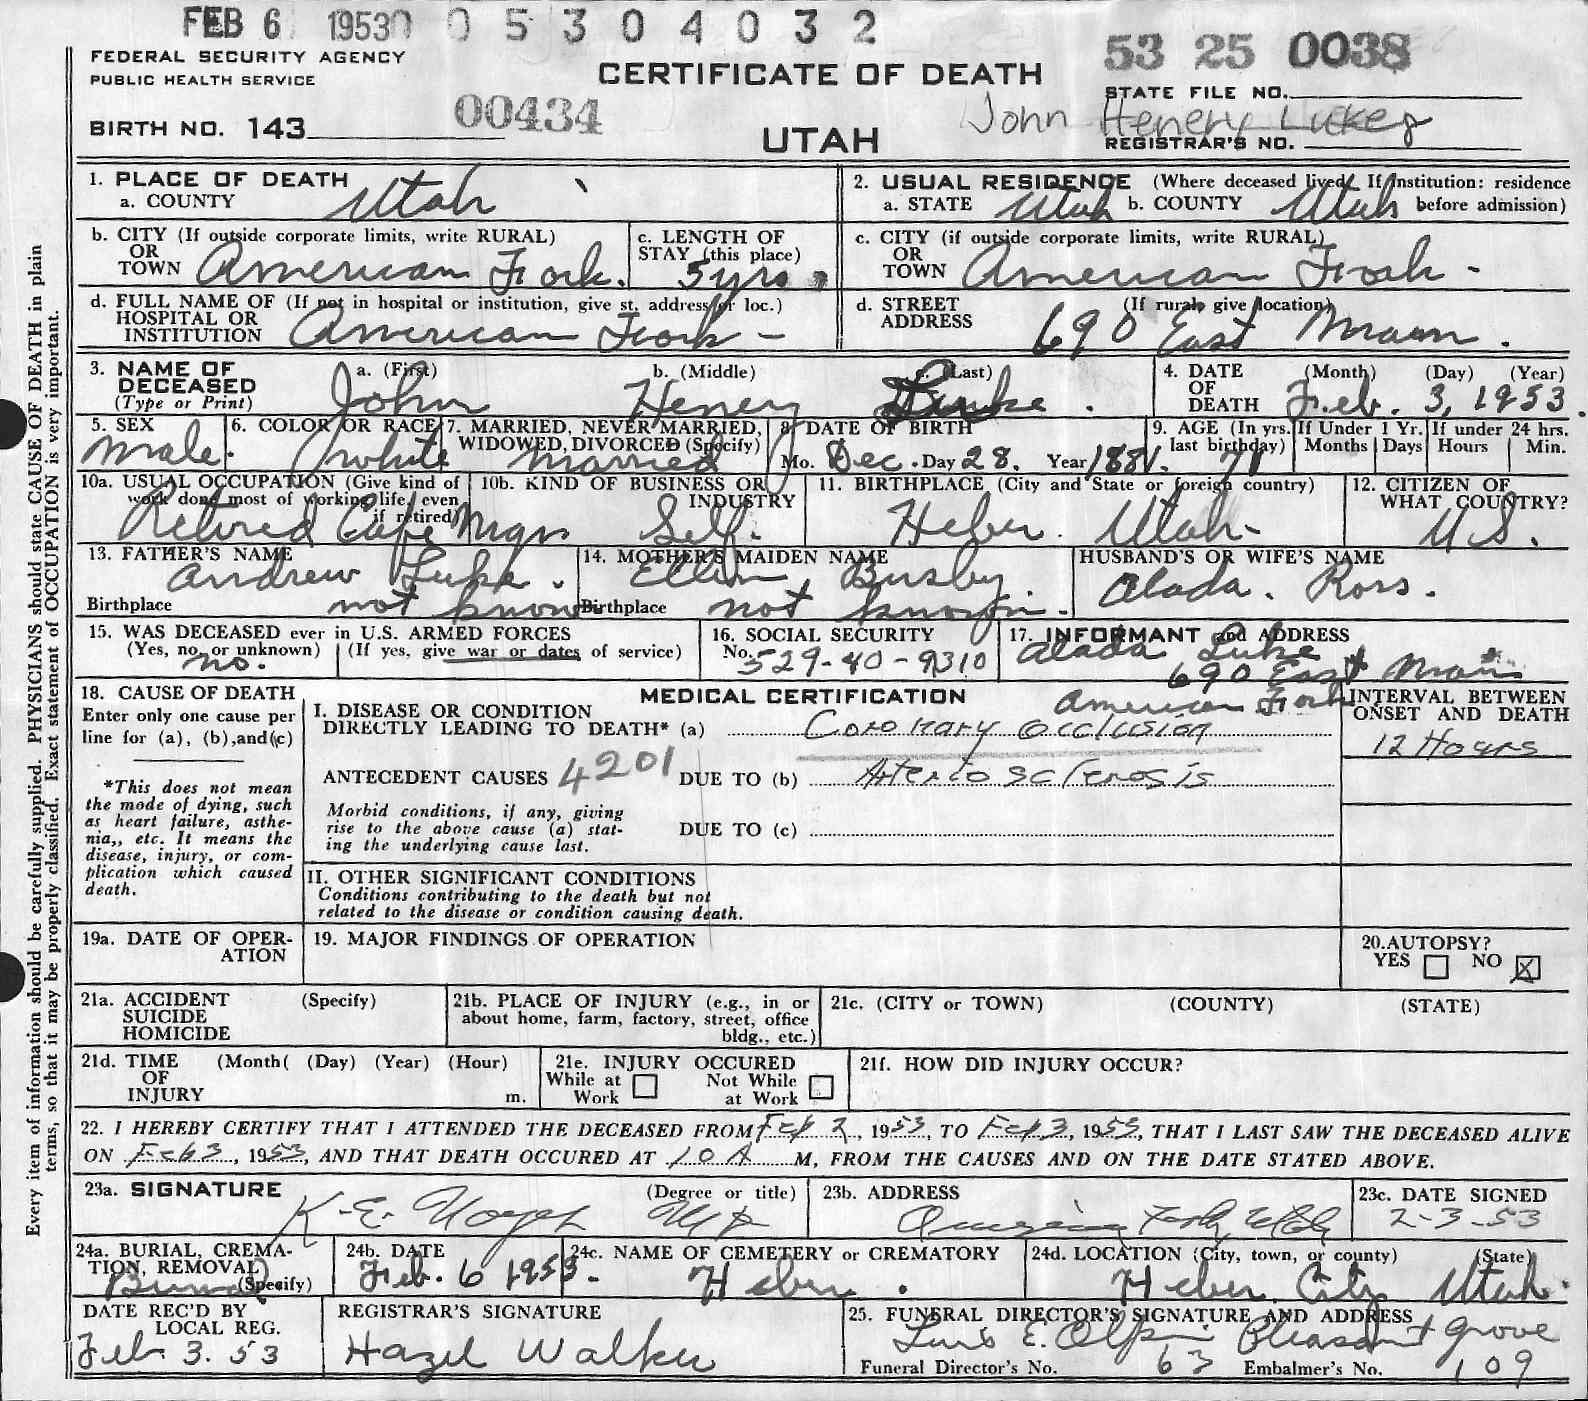 FEB 6 1953 0 0 5 3 0 4 0 3 2
FEDERAL SECURITY AGENCY
PUBLIC HEALTH SERVICE
CERTIFICATE OF DEATH
53 25 0038
STATE FILE NO.
BIRTH NO. 143
00434
UTAH
John Henery Lukes
REGISTRAR'S NO.
1. PLACE OF DEATH
a. COUNTY Utah
2. USUAL RESIDENCE (Where deceased lived. If institution: residence
a. STATE Utah b. COUNTY Utah before admission)
b. CITY (If outside corporate limits, write RURAL)
OR
TOWN American Fork.
c. LENGTH OF
STAY (this place)
5 yrs
c. CITY (if outside corporate limits, write RURAL)
OR
TOWN American Fork -
d. FULL NAME OF (If not in hospital or institution, give st. address or loc.)
HOSPITAL OR
INSTITUTION American Fork -
d. STREET (If rural, give location)
ADDRESS 690 East Main.
3. NAME OF
DECEASED
(Type or Print)
a. (First) b. (Middle) c. (Last)
John Henery Luke.
4. DATE
OF
DEATH
(Month) (Day) (Year)
Feb. 3, 1953.
5. SEX
Male.
6. COLOR OR RACE
White
7. MARRIED, NEVER MARRIED,
WIDOWED, DIVORCED (Specify)
Married
8. DATE OF BIRTH
Mo. Dec. Day 28. Year 1881.
9. AGE (In yrs.
last birthday)
71
If Under 1 Yr.
Months Days
If under 24 hrs.
Hours Min.
10a. USUAL OCCUPATION (Give kind of
work done most of working life, even
if retired)
Retired Cafe Mgr
10b. KIND OF BUSINESS OR
INDUSTRY
Self.
11. BIRTHPLACE (City and State or foreign country)
Heber. Utah-
12. CITIZEN OF
WHAT COUNTRY?
U.S.
13. FATHER'S NAME
Andrew Luke.
Birthplace not know
14. MOTHER'S MAIDEN NAME
Ellen Busby
Birthplace not known.
HUSBAND'S OR WIFE'S NAME
Alada. Ross.
15. WAS DECEASED ever in U.S. ARMED FORCES
(Yes, no, or unknown) (If yes, give war or dates of service)
no.
16. SOCIAL SECURITY
No. 529-40-9310
17. INFORMANT and ADDRESS
Alada Luke
690 East Main
American Fork
18. CAUSE OF DEATH
Enter only one cause per
line for (a), (b), and (c)
*This does not mean
the mode of dying, such
as heart failure, asthe-
nia,, etc. It means the
disease, injury, or com-
plication which caused
death.
MEDICAL CERTIFICATION
I. DISEASE OR CONDITION
DIRECTLY LEADING TO DEATH* (a) Coronary occlusion
ANTECEDENT CAUSES 4201 DUE TO (b) Arteriosclerosis
Morbid conditions, if any, giving
rise to the above cause (a) stat-
ing the underlying cause last.
DUE TO (c)
INTERVAL BETWEEN
ONSET AND DEATH
12 Hours
II. OTHER SIGNIFICANT CONDITIONS
Conditions contributing to the death but not
related to the disease or condition causing death.
19a. DATE OF OPER-
ATION
19. MAJOR FINDINGS OF OPERATION
20. AUTOPSY?
YES NO X
21a. ACCIDENT (Specify)
SUICIDE
HOMICIDE
21b. PLACE OF INJURY (e.g., in or
about home, farm, factory, street, office
bldg., etc.)
21c. (CITY or TOWN) (COUNTY) (STATE)
21d. TIME (Month( (Day) (Year) (Hour)
OF
INJURY m.
21e. INJURY OCCURED
While at Work Not While at Work
21f. HOW DID INJURY OCCUR?
22. I HEREBY CERTIFY THAT I ATTENDED THE DECEASED FROM Feb 2, 1953, TO Feb 3, 1953, THAT I LAST SAW THE DECEASED ALIVE
ON Feb 3, 1953, AND THAT DEATH OCCURED AT 10 A M, FROM THE CAUSES AND ON THE DATE STATED ABOVE.
23a. SIGNATURE (Degree or title)
K. E. Noyes MD
23b. ADDRESS
American Fork Utah
23c. DATE SIGNED
2-3-53
24a. BURIAL, CREMA-
TION, REMOVAL
(Specify)
Burial
24b. DATE
Feb. 6 1953.
24c. NAME OF CEMETERY or CREMATORY
Heber.
24d. LOCATION (City, town, or county) (State)
Heber City Utah.
DATE REC'D BY
LOCAL REG.
Feb. 3. 53
REGISTRAR'S SIGNATURE
Hazel Walker
25. FUNERAL DIRECTOR'S SIGNATURE AND ADDRESS
E. Olpin Pleasant Grove
Funeral Director's No. 63 Embalmer's No. 109
Every item of information should be carefully supplied. PHYSICIANS should state CAUSE OF DEATH in plain
terms, so that it may be properly classified. Exact statement of OCCUPATION is very important.